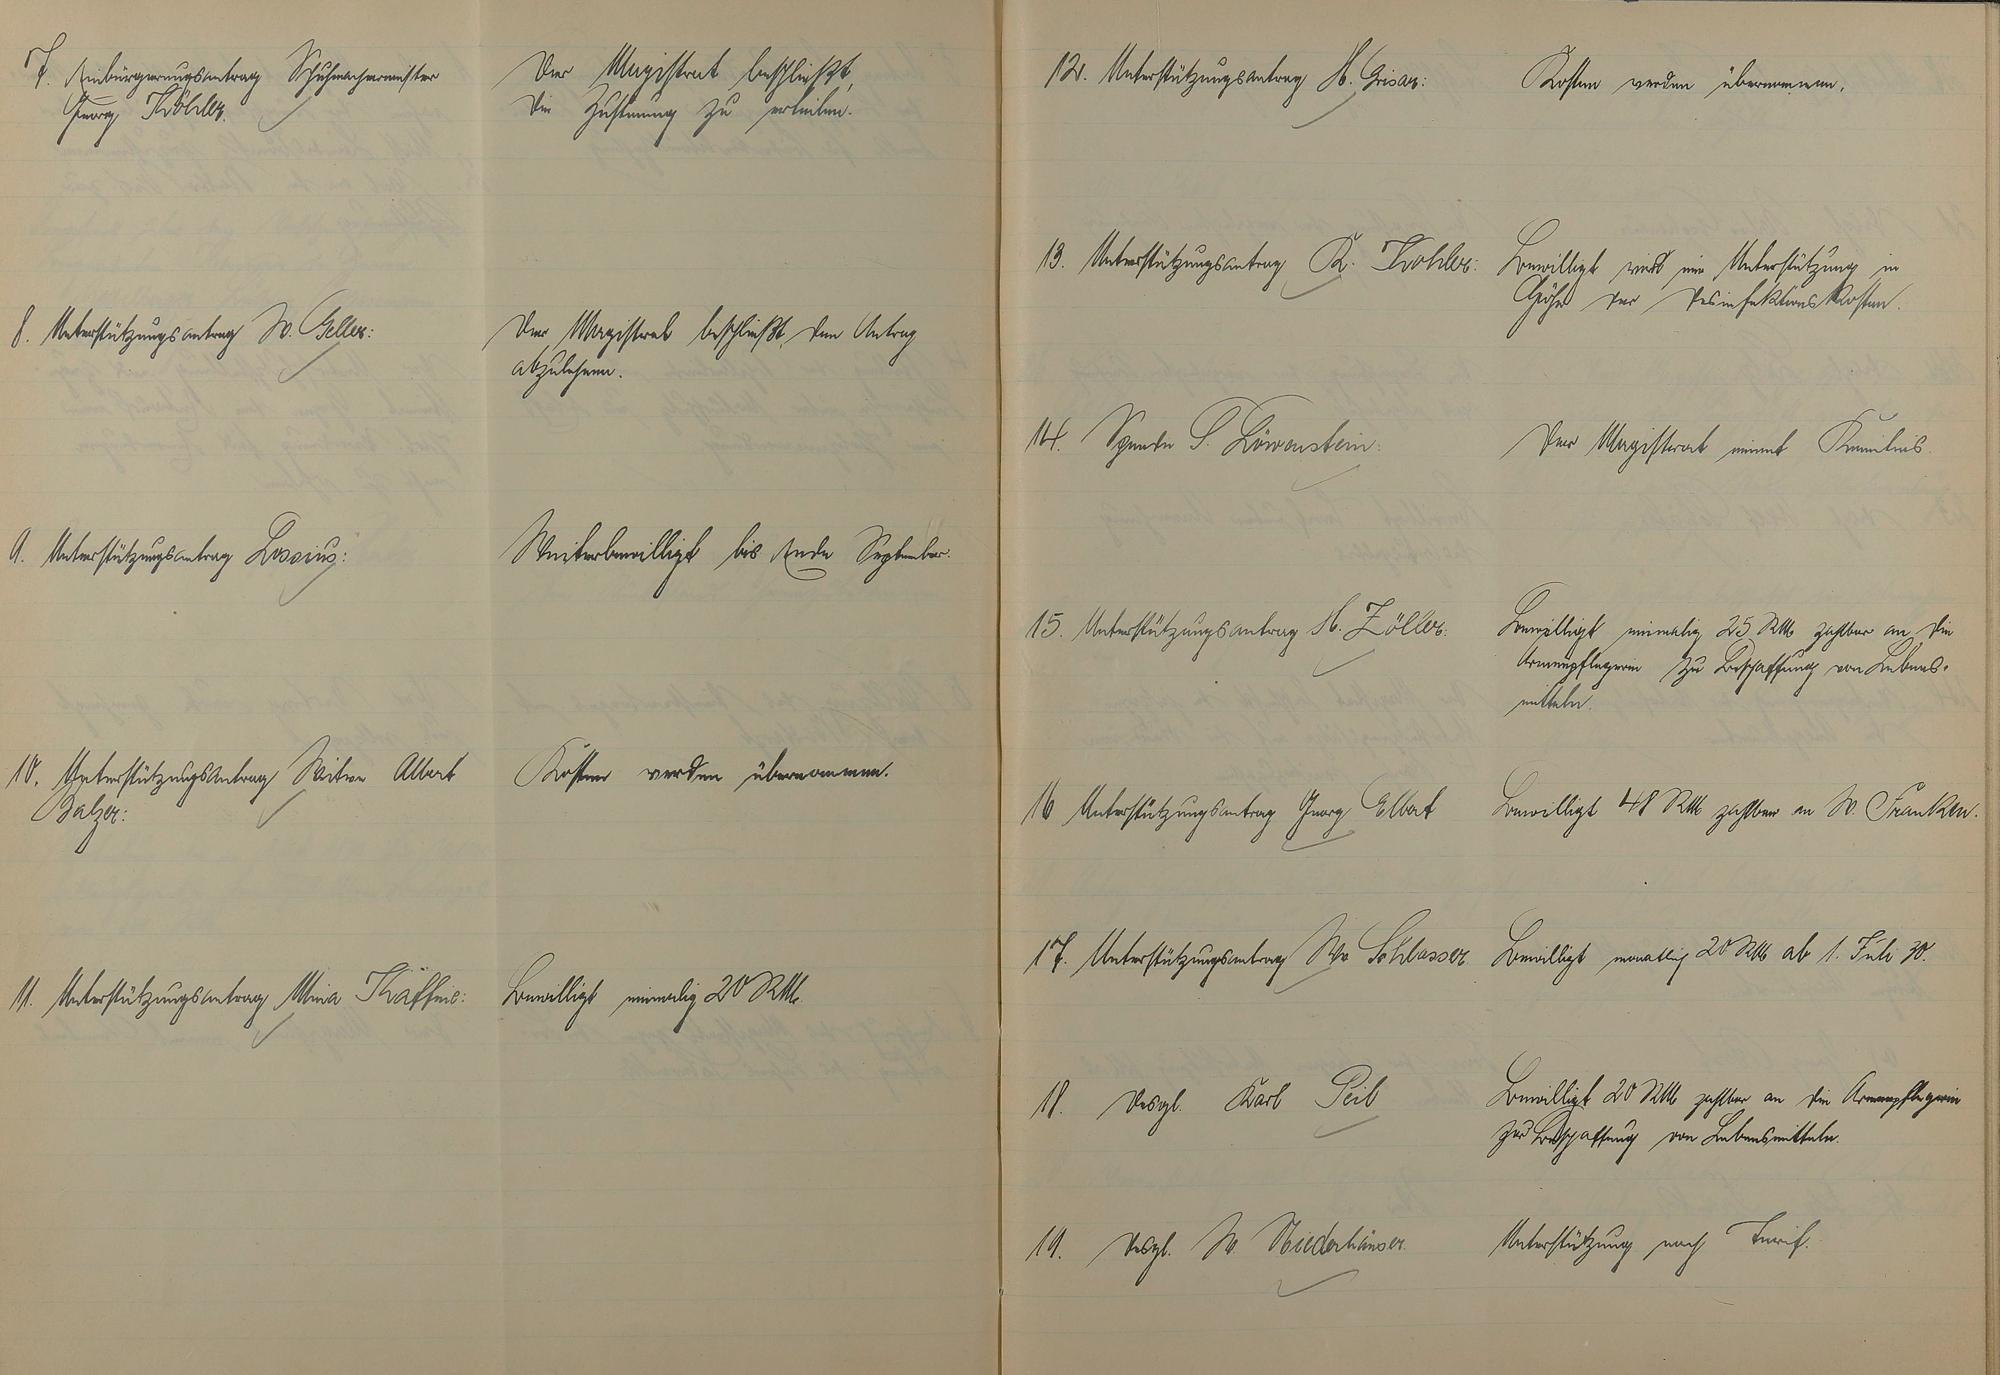 7. Einbürgerungsantrag Schuhmachermeister
Georg Köhler.
Der Magistrat beschließt,
die Zustimmung zu erteilen.
8. Unterstützungsantrag W. Geller:
Der Magistrat beschließt, den Antrag
abzulehnen.
9. Unterstützungsantrag Lossius:
Weiterbewilligt bis Ende September.
10. Unterstützungsantrag Witwe Albert
Balzer:
Kosten werden übernommen.
11. Unterstützungsantrag Mina Käffnie:
Bewilligt einmalig 20 RM.
12. Unterstützungsantrag H. Grisar:
Kosten werden übernommen.
13. Unterstützungsantrag K. Kohler:
Bewilligt wird eine Unterstützung in
Höhe der Desinfektionskosten.
14. Spende S. Löwenstein:
Der Magistrat nimmt Kenntnis.
15. Unterstützungsantrag H. Zöller:
Bewilligt einmalig 25 RM zahlbar an die
Armenpflegerin zu Beschaffung von Lebens-
mitteln.
16 Unterstützungsantrag Georg Elbert
Bewilligt 48 RM zahlbar an W. Franken.
17. Unterstützungsantrag Ww Schlosser
Bewilligt monatlig 20 RM ab 1. Juli 30.
18. Desgl. Karl Peil
Bewilligt 20 RM zahlbar an die Armenpflegerin
zur Beschaffung von Lebensmitteln.
19. Desgl. W. Niederhäuser.
Unterstützung nach Tarif.